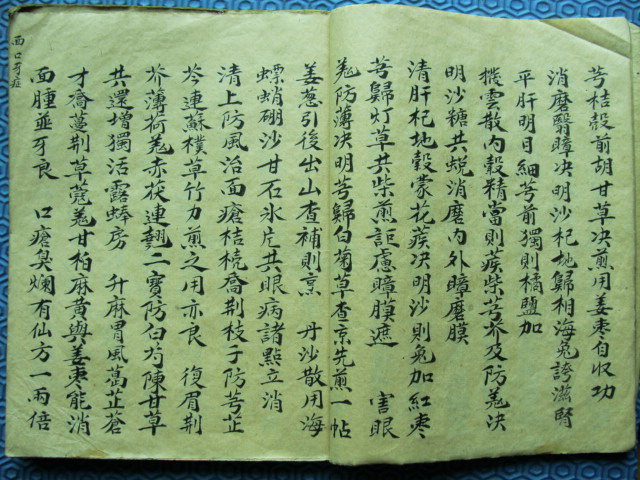 芎桔殼前胡甘草决煎用姜枣自收功
消磨翳障决明沙杞地歸相海兔誇滋腎
平肝明目細芎前獨則橘鹽加
撥雲散内殼精當則蒺柴芎芥及防羗决
明沙糖共蛻消麈内外暲磨膜
清肝杞地殼蒙花蒺决明沙則兔加紅枣
芎歸灯草共柴煎詎慮暲膜遮 害眼
羗防薄决明芎歸白菊草查京先煎一帖
姜葱引後出山查補則烹 丹沙散用海
螵蛸硼沙甘石氷片共眼病諸點立消
清上防風治面瘡桔梗喬荆枝子防芎芷
芩連蘇樸草竹力煎之用亦良 復眉荆
芥薄荷羗赤茯連翹二寳防白芍陳甘草
共還增獨活露蜂房 升麻胃風葛芷蒼
才喬蔓荆草蔻羗甘柏麻黄與姜枣能消
面腫並牙良 口瘡臭爛有仙方一兩倍
面口牙症